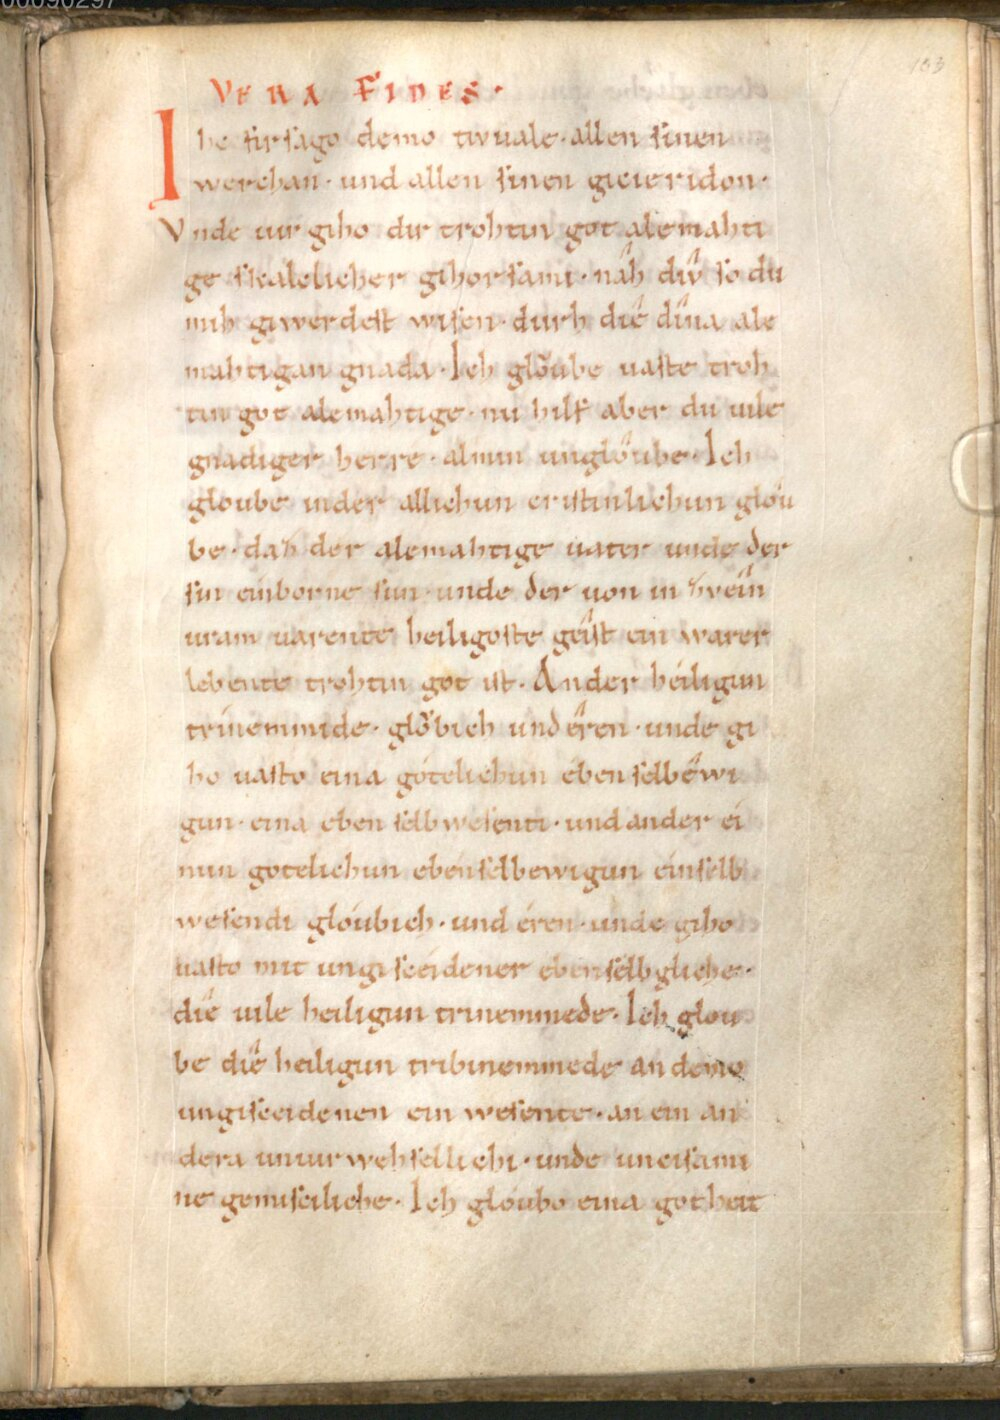 00090297
103
VERA FIDES·
Ihc firſago demo tivuale· allen ſinen
werchan· und allen ſinen gicieridon·
Vnde uirgiho dir trohtin got alemahti
ge ſkalclicher gihorſami· nâh div̂ ſo du
mih giwerdeſt wiſen· durh diê dîna ale
mahtigan gnada· Ich glǒube uaſte troh
tin got alemahtige· nu hilf aber du uile
gnadiger herre· almin unglôube· Ich
gloube inder allichun criſtinlichun glóu
be· daz der alemahtige uater unde der
ſin einborne ſun· unde der von in zvêin
uram uarente heiligoſte gêiſt ein warer
lebente trohtin got iſt· Ander héiligun
trínemmide· glǒbich und êren· unde gi
ho uaſto eina góteli​chun ébenſelbêwi
gun· eina eben ſelbweſenti· und ander eí
nun gotelichun ebénſelbewigun eínſelb
weſendi gloúbich· und éren· unde giho
uaſto mit ungiſceidener ebenſélbgliche·
diê uile heiligun trinemmede· Ich glou
be diê heiligun tribinemmede an demo
ungiſceidenen ein weſente· an ein an
dera unuirwehſellichi· unde unciſami
ne gemiſciliche· Ich gloúbo eina gotheit